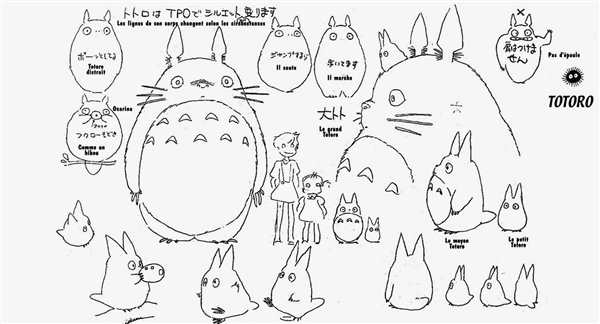 トトロはTPOでシルエット変ります
Les lignes de son corps changent selon les circonstances
ボーッとしてる
Totoro
distrait
ジャンプするよ
Il saute
歩いてます
Il marche
×
肩はつけま
せん
Pas d'épaule
TOTORO
Ocarina
フクローもどき
Comme un
hibou
大トト
Le grand
Totoro
Le moyen
Totoro
Le petit
Totoro